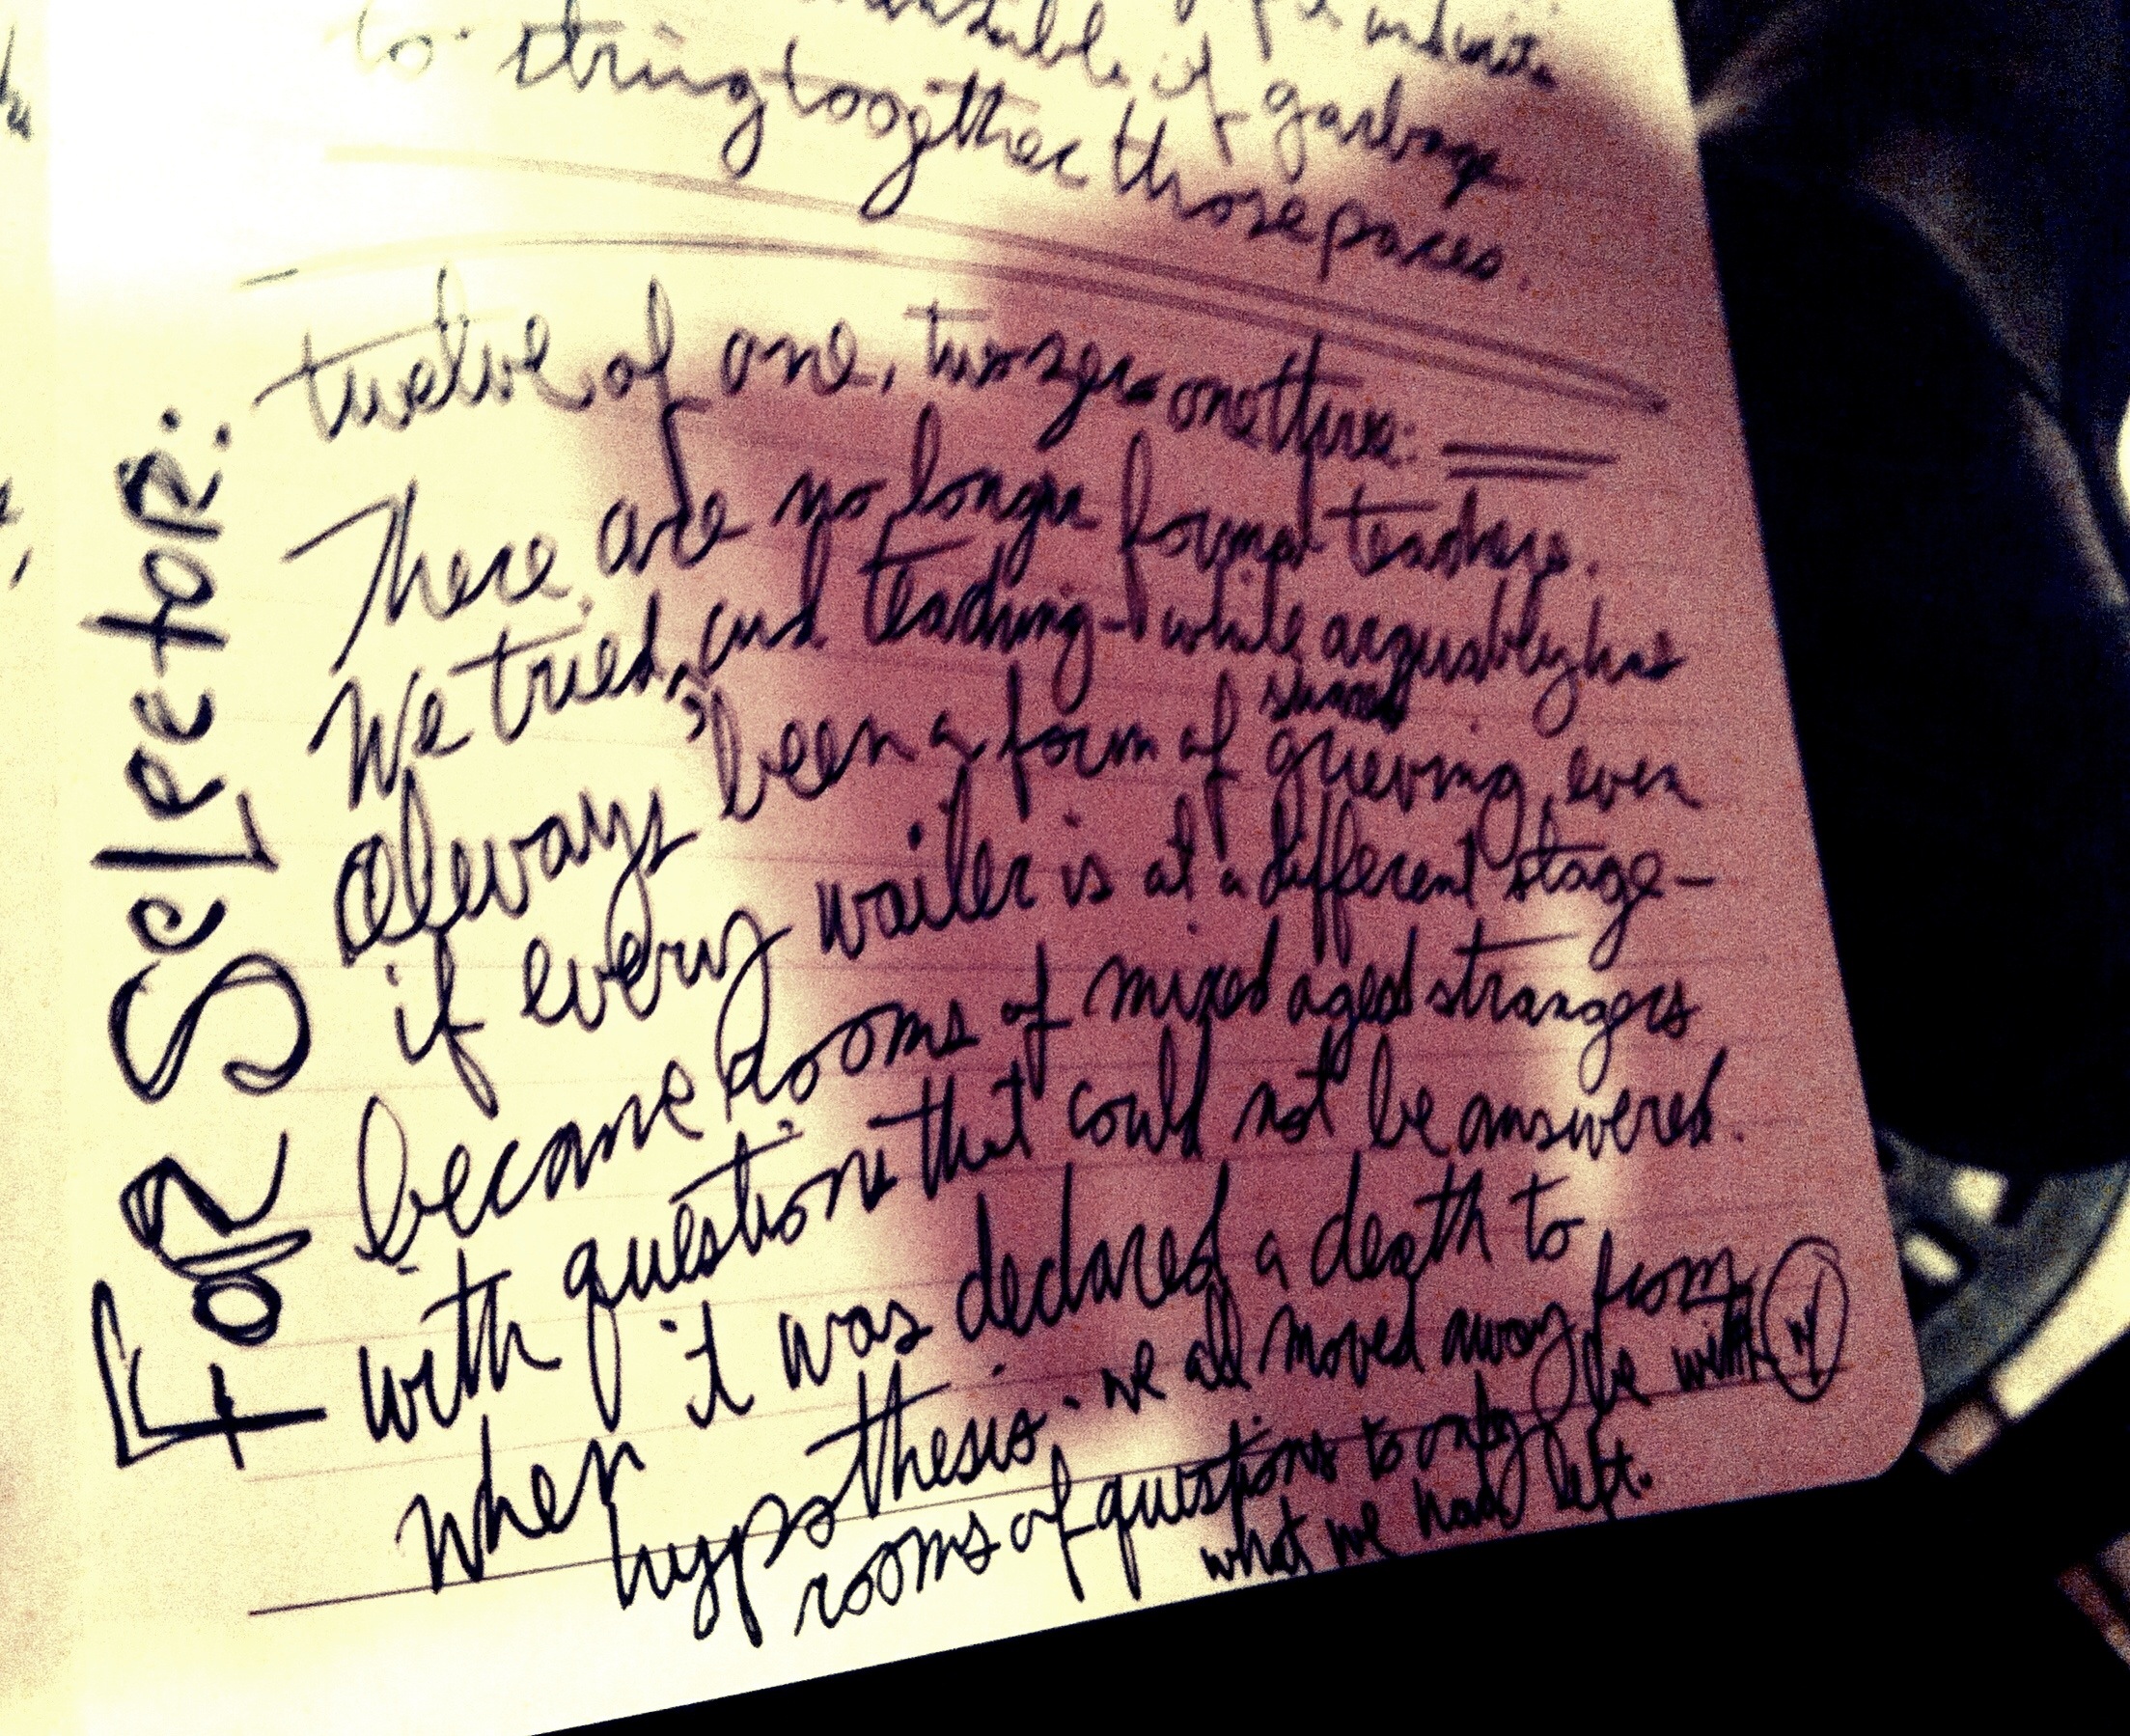 if garbage
to string together those paces.
FOR SeLectoR:
twelve of one, two zero one three:
There are no longer formal teachers.
We tried, and teaching - while arguably has
always been a form of shared grieving, even
if every wailer is at a different stage -
became rooms of mixed aged strangers
with questions that could not be answered.
When it was declared a death to
hypothesis. we all moved away from
rooms of questions to only be with
what we had left.